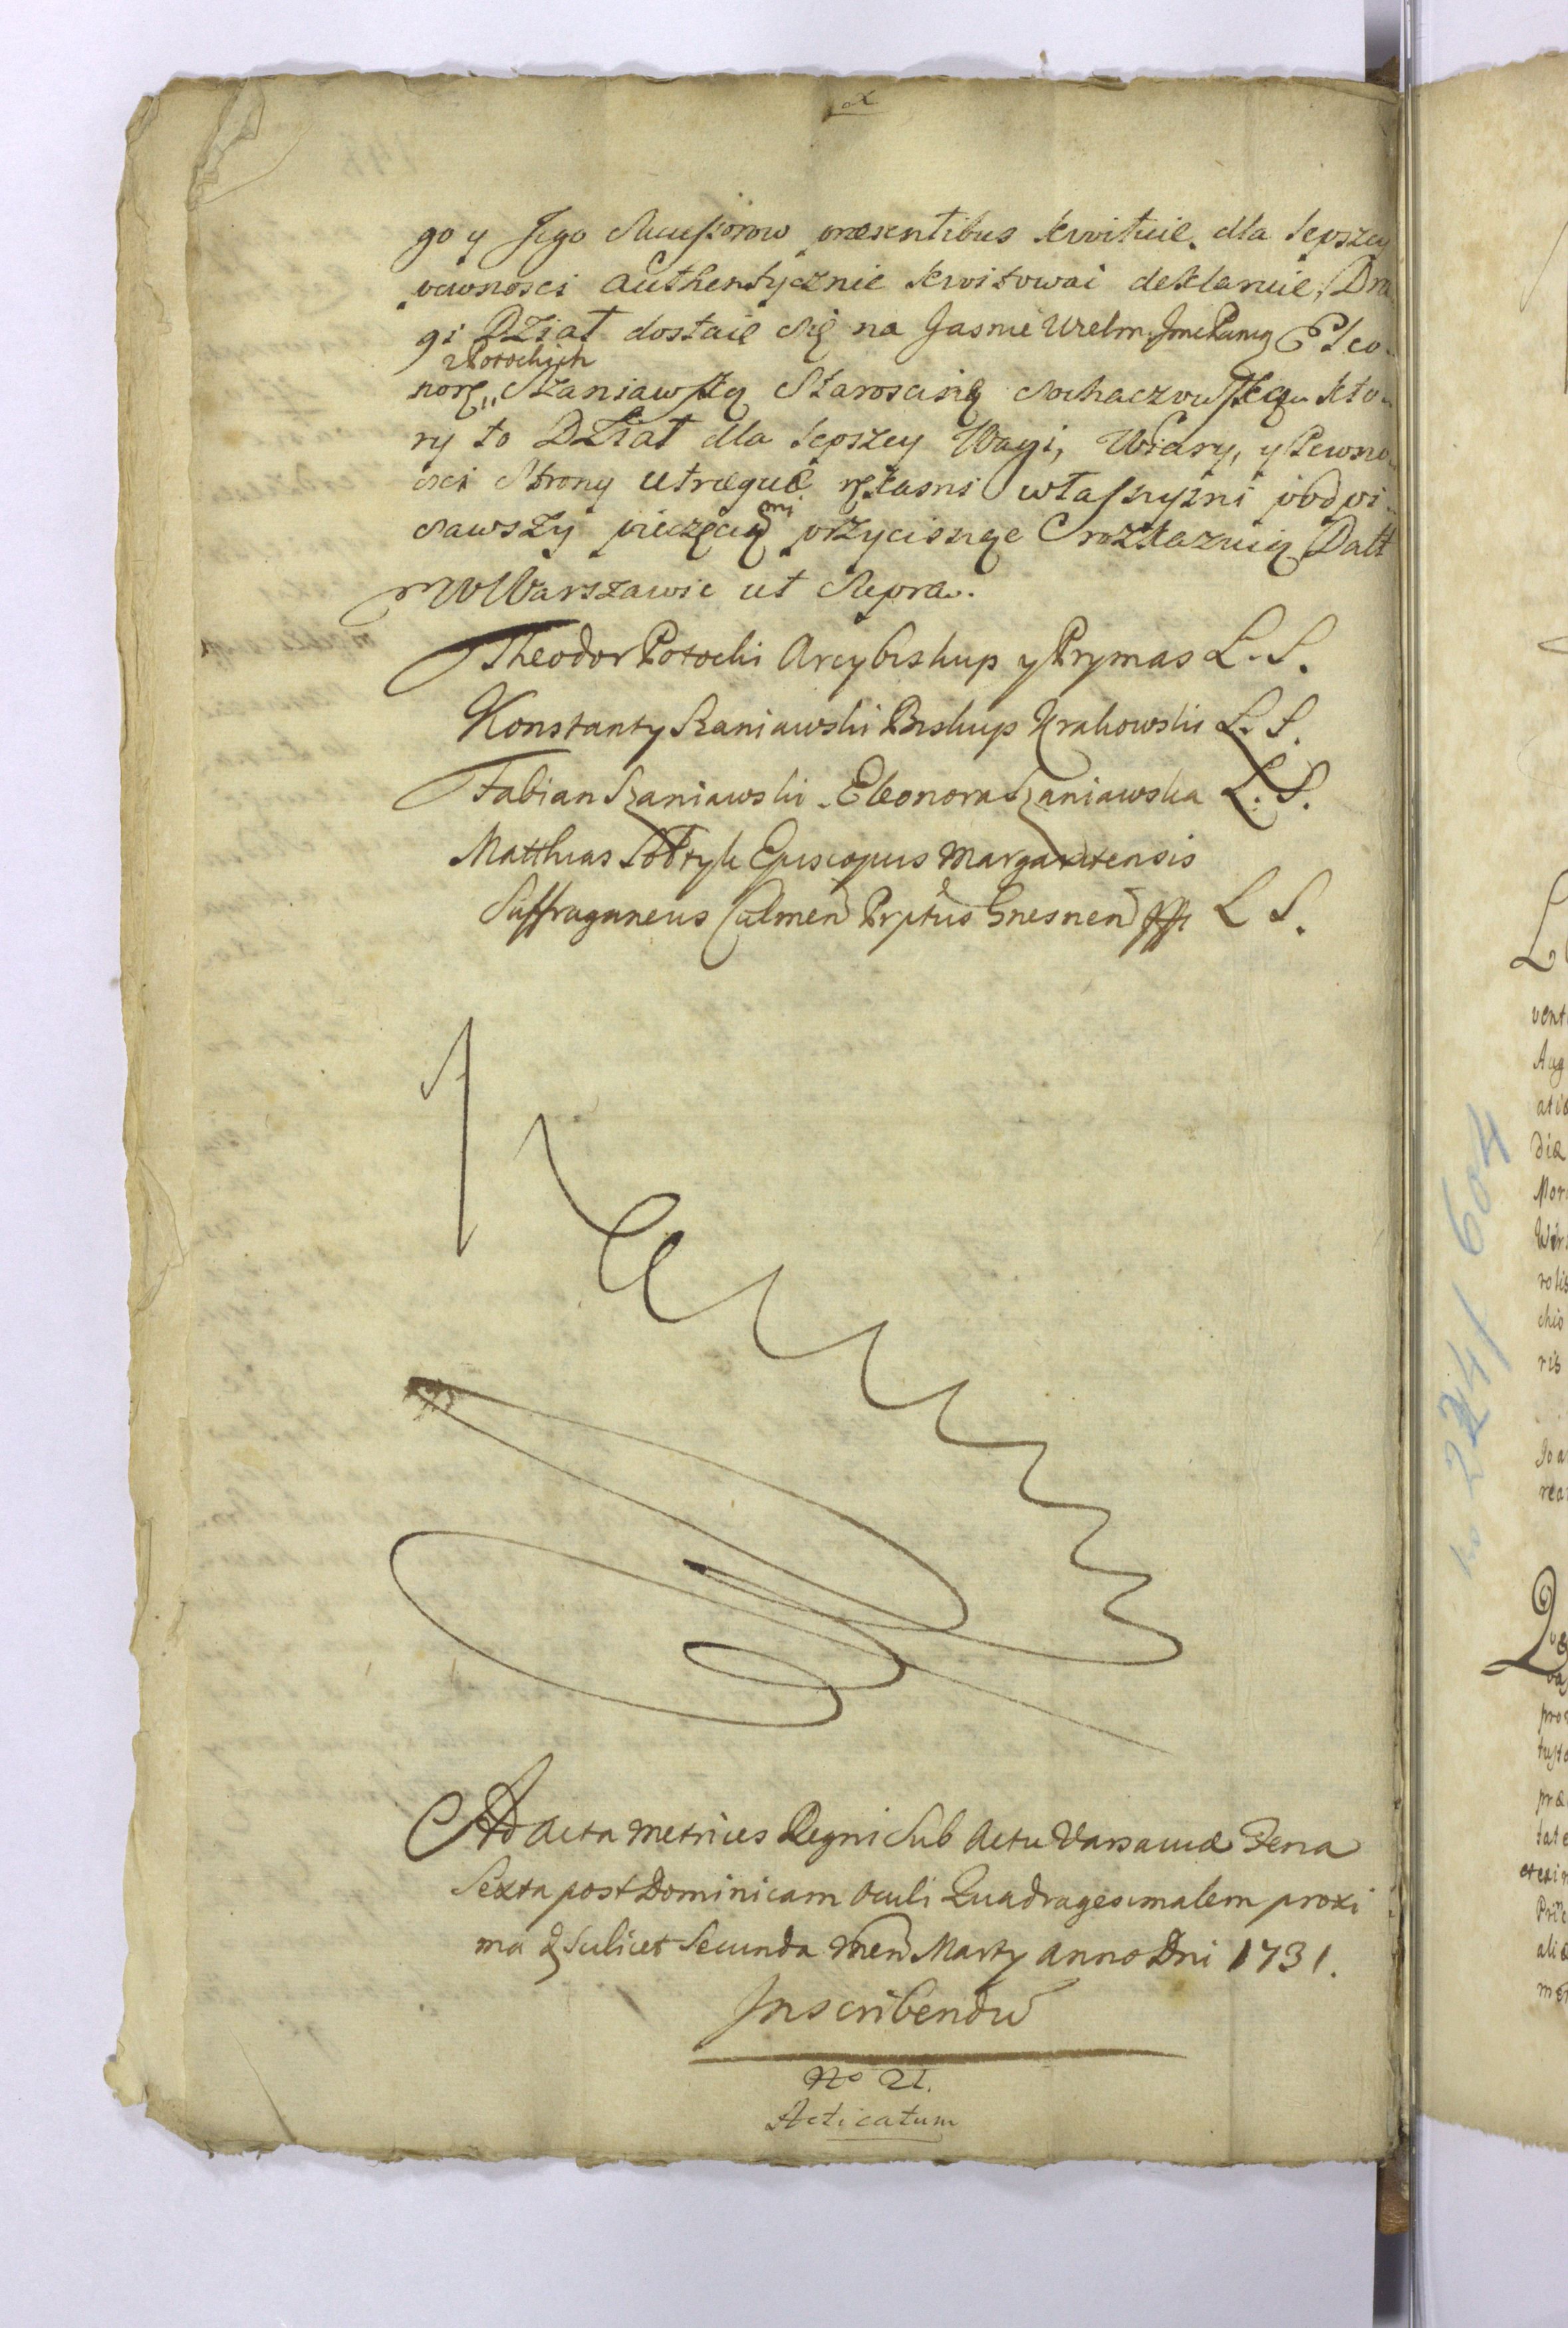 go y Jego Sukcessorow præsentibus kwituie, dla lepszey
pewnosci authentycznie kwitowac deklaruie, Dru
gi Dział dostaie się na Jasnie Wielm. Jmc Panią Eleo-
z Potockich
norę Szaniawską Starościnę Sochaczewską, kto-
ry to Dział dla lepszey Wagi, Wiary, y Pewno-
sci Strony utræque rękami własnymi podpi-
sawszy pieczęciami przycisnąc rozkazuią. Datt
w Warszawie ut Supra.
Theodor Potocki Arcybiskup y Prymas L. S.
Konstanty Szaniawski Biskup Krakowski L. S.
Fabian Szaniawski. Eleonora Szaniawska L. S.
Matthias Sołtyk Episcopus Margaritensis
Suffraganeus Culmen Prptus Gnesnen L S.
Ad Acta Metrices Regni Sub Actu Varsaviæ Feria
Sexta post Dominicam Oculi Quadragesimalem proxi
ma scilicet Secunda Men Marty Anno Dni 1731.
Inscribendu
No 21.
Acticatum
224/604
vent
Aug
dia
Mor
ris